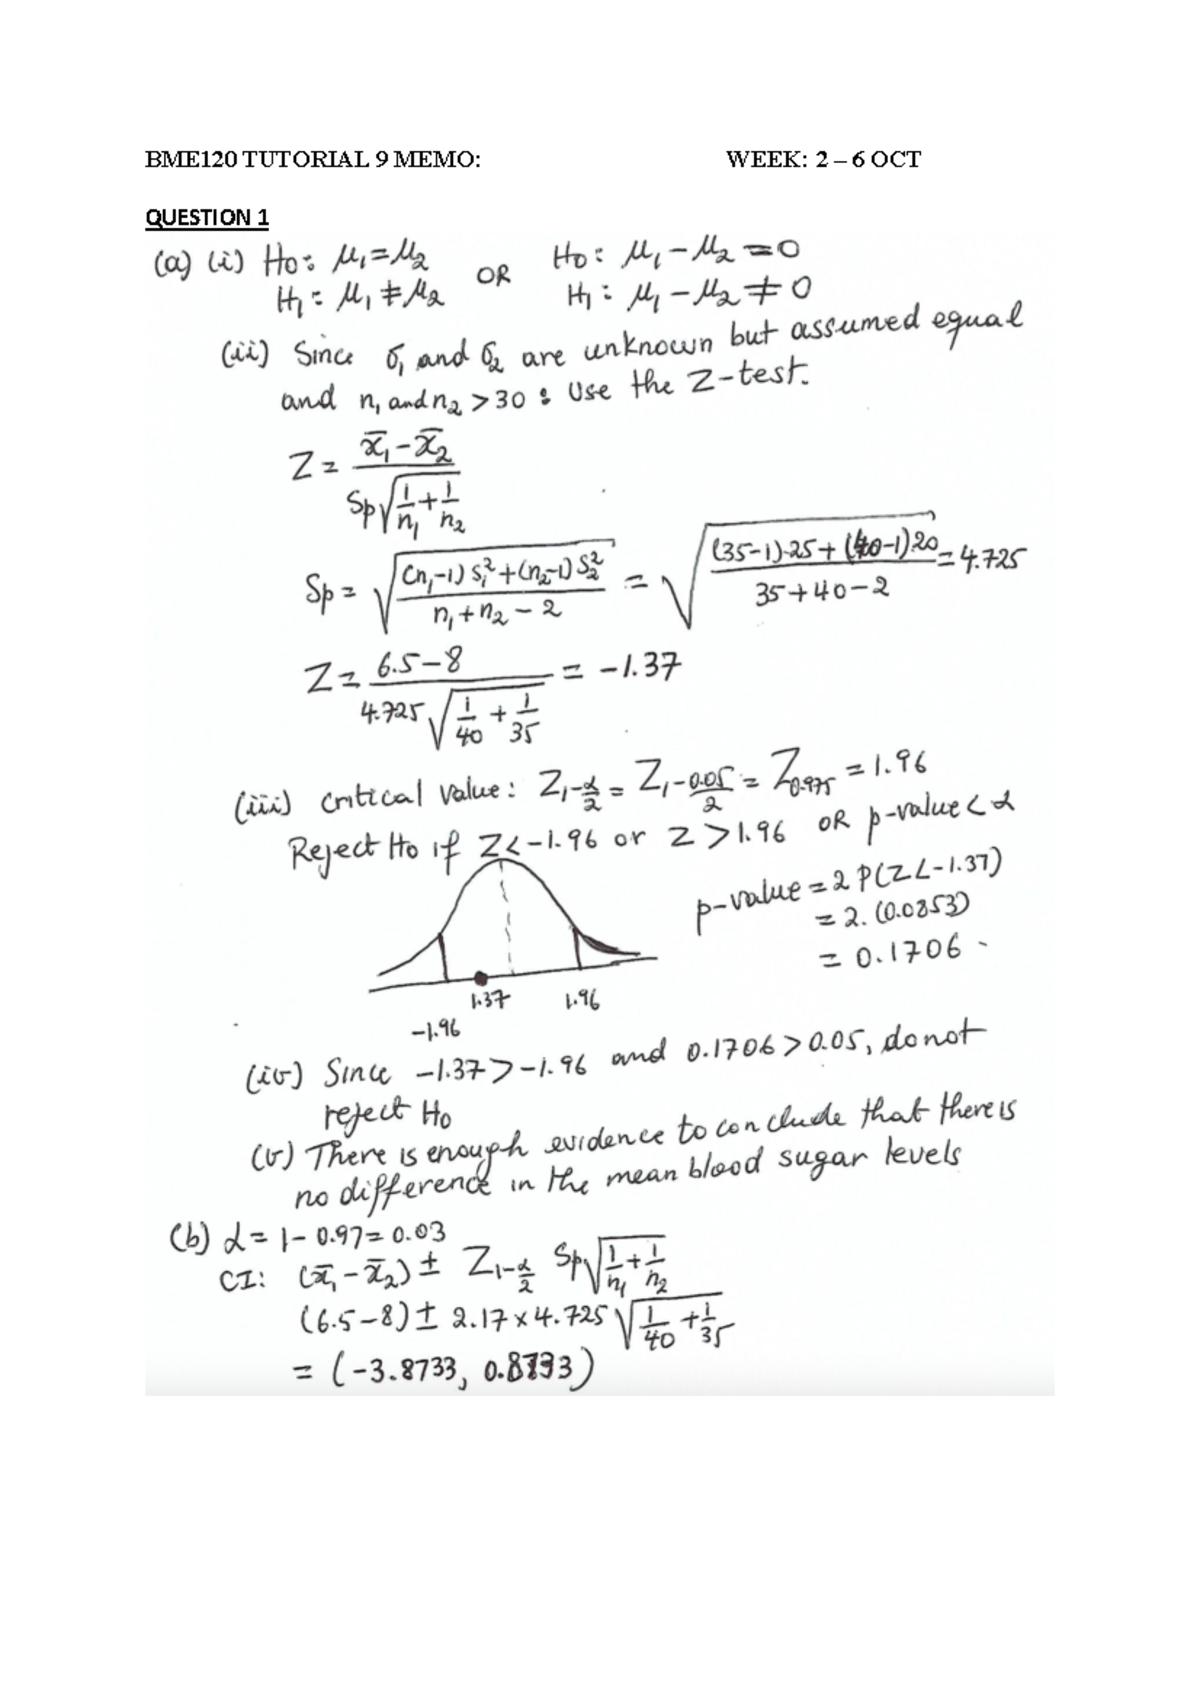 BME120 TUTORIAL 9 MEMO: WEEK: 2 – 6 OCT
QUESTION 1
(a) (i) H0: μ1 = μ2 OR H0: μ1 − μ2 = 0
H1: μ1 ≠ μ2 H1: μ1 − μ2 ≠ 0
(ii) Since σ1 and σ2 are unknown but assumed equal
and n1 and n2 > 30: Use the Z-test.
Z = (x̄1 − x̄2) / (Sp√(1/n1 + 1/n2))
Sp = √(((n1−1)S1² + (n2−1)S2²) / (n1 + n2 − 2)) = √(((35−1)·25 + (40−1)·20) / (35+40−2)) = 4.725
Z = (6.5 − 8) / (4.725√(1/40 + 1/35)) = −1.37
(iii) Critical value: Z1−α/2 = Z1−0.05/2 = Z0.975 = 1.96
Reject H0 if Z < −1.96 or Z > 1.96 OR p-value < α
p-value = 2 P(Z < −1.37)
= 2.(0.0853)
= 0.1706
1.37 1.96
−1.96
(iv) Since −1.37 > −1.96 and 0.1706 > 0.05, do not
reject H0
(v) There is enough evidence to conclude that there is
no difference in the mean blood sugar levels
(b) α = 1 − 0.97 = 0.03
CI: (x̄1 − x̄2) ± Z1−α/2 Sp√(1/n1 + 1/n2)
(6.5 − 8) ± 2.17 × 4.725√(1/40 + 1/35)
= (−3.8733, 0.8733)